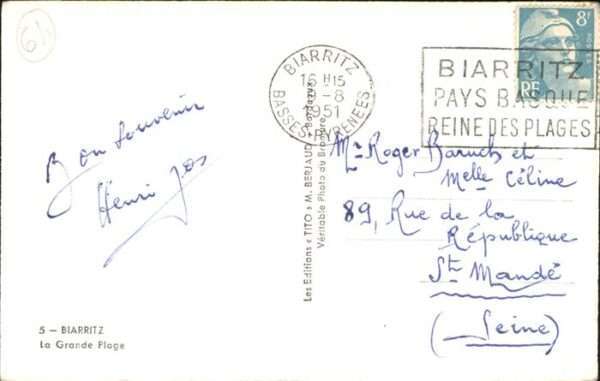 64
8F
RF
BIARRITZ
16 H15
-8
1951
BASSES-PYRENEES
BIARRITZ
PAYS BASQUE
REINE DES PLAGES
Bon souvenir
Henri
Mr Roger Baruch et
Melle Céline
89, Rue de la
République
St Mandé
(Seine)
Les Editions « TITO » M. BERJAUD, Bordeaux
Véritable Photo au Bromure
5 — BIARRITZ
La Grande Plage